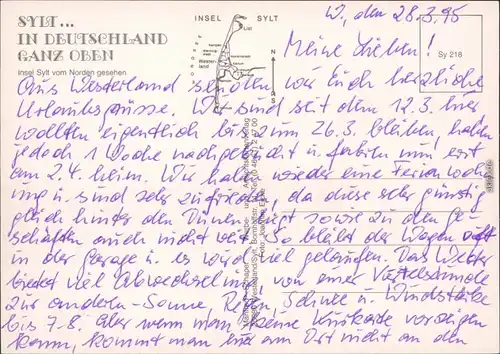 SYLT...
IN DEUTSCHLAND
GANZ OBEN
Insel Sylt vom Norden gesehen
INSEL SYLT
List
Westerland
N
S
Sy 218
W, den 28.3.95
Meine Lieben!
Aus Westerland senden wir Euch herzliche
Urlaubsgrüsse. Wir sind seit dem 12.3. hier
wollten eigentlich bis zum 26.3. bleiben, haben
jedoch 1 Woche nachgebucht u. fahren nun erst
am 2.4. heim. Wir haben wieder eine Ferienwoh
nung u. sind sehr zufrieden, da diese sehr günstig
gleich hinter den Dünen liegt sowie zu den Ge-
schäften auch nicht weit. So bleibt der Wagen oft
in der Garage u. es wird viel gelaufen. Das Wetter
bietet viel Abwechselung, von einer Viertelstunde
zur anderen - Sonne, Regen, Schnee u. Windstärke
bis 7-8. Aber wenn man keine Kurkarte vorzeigen
kann, kommt man hier am Ort nicht an den